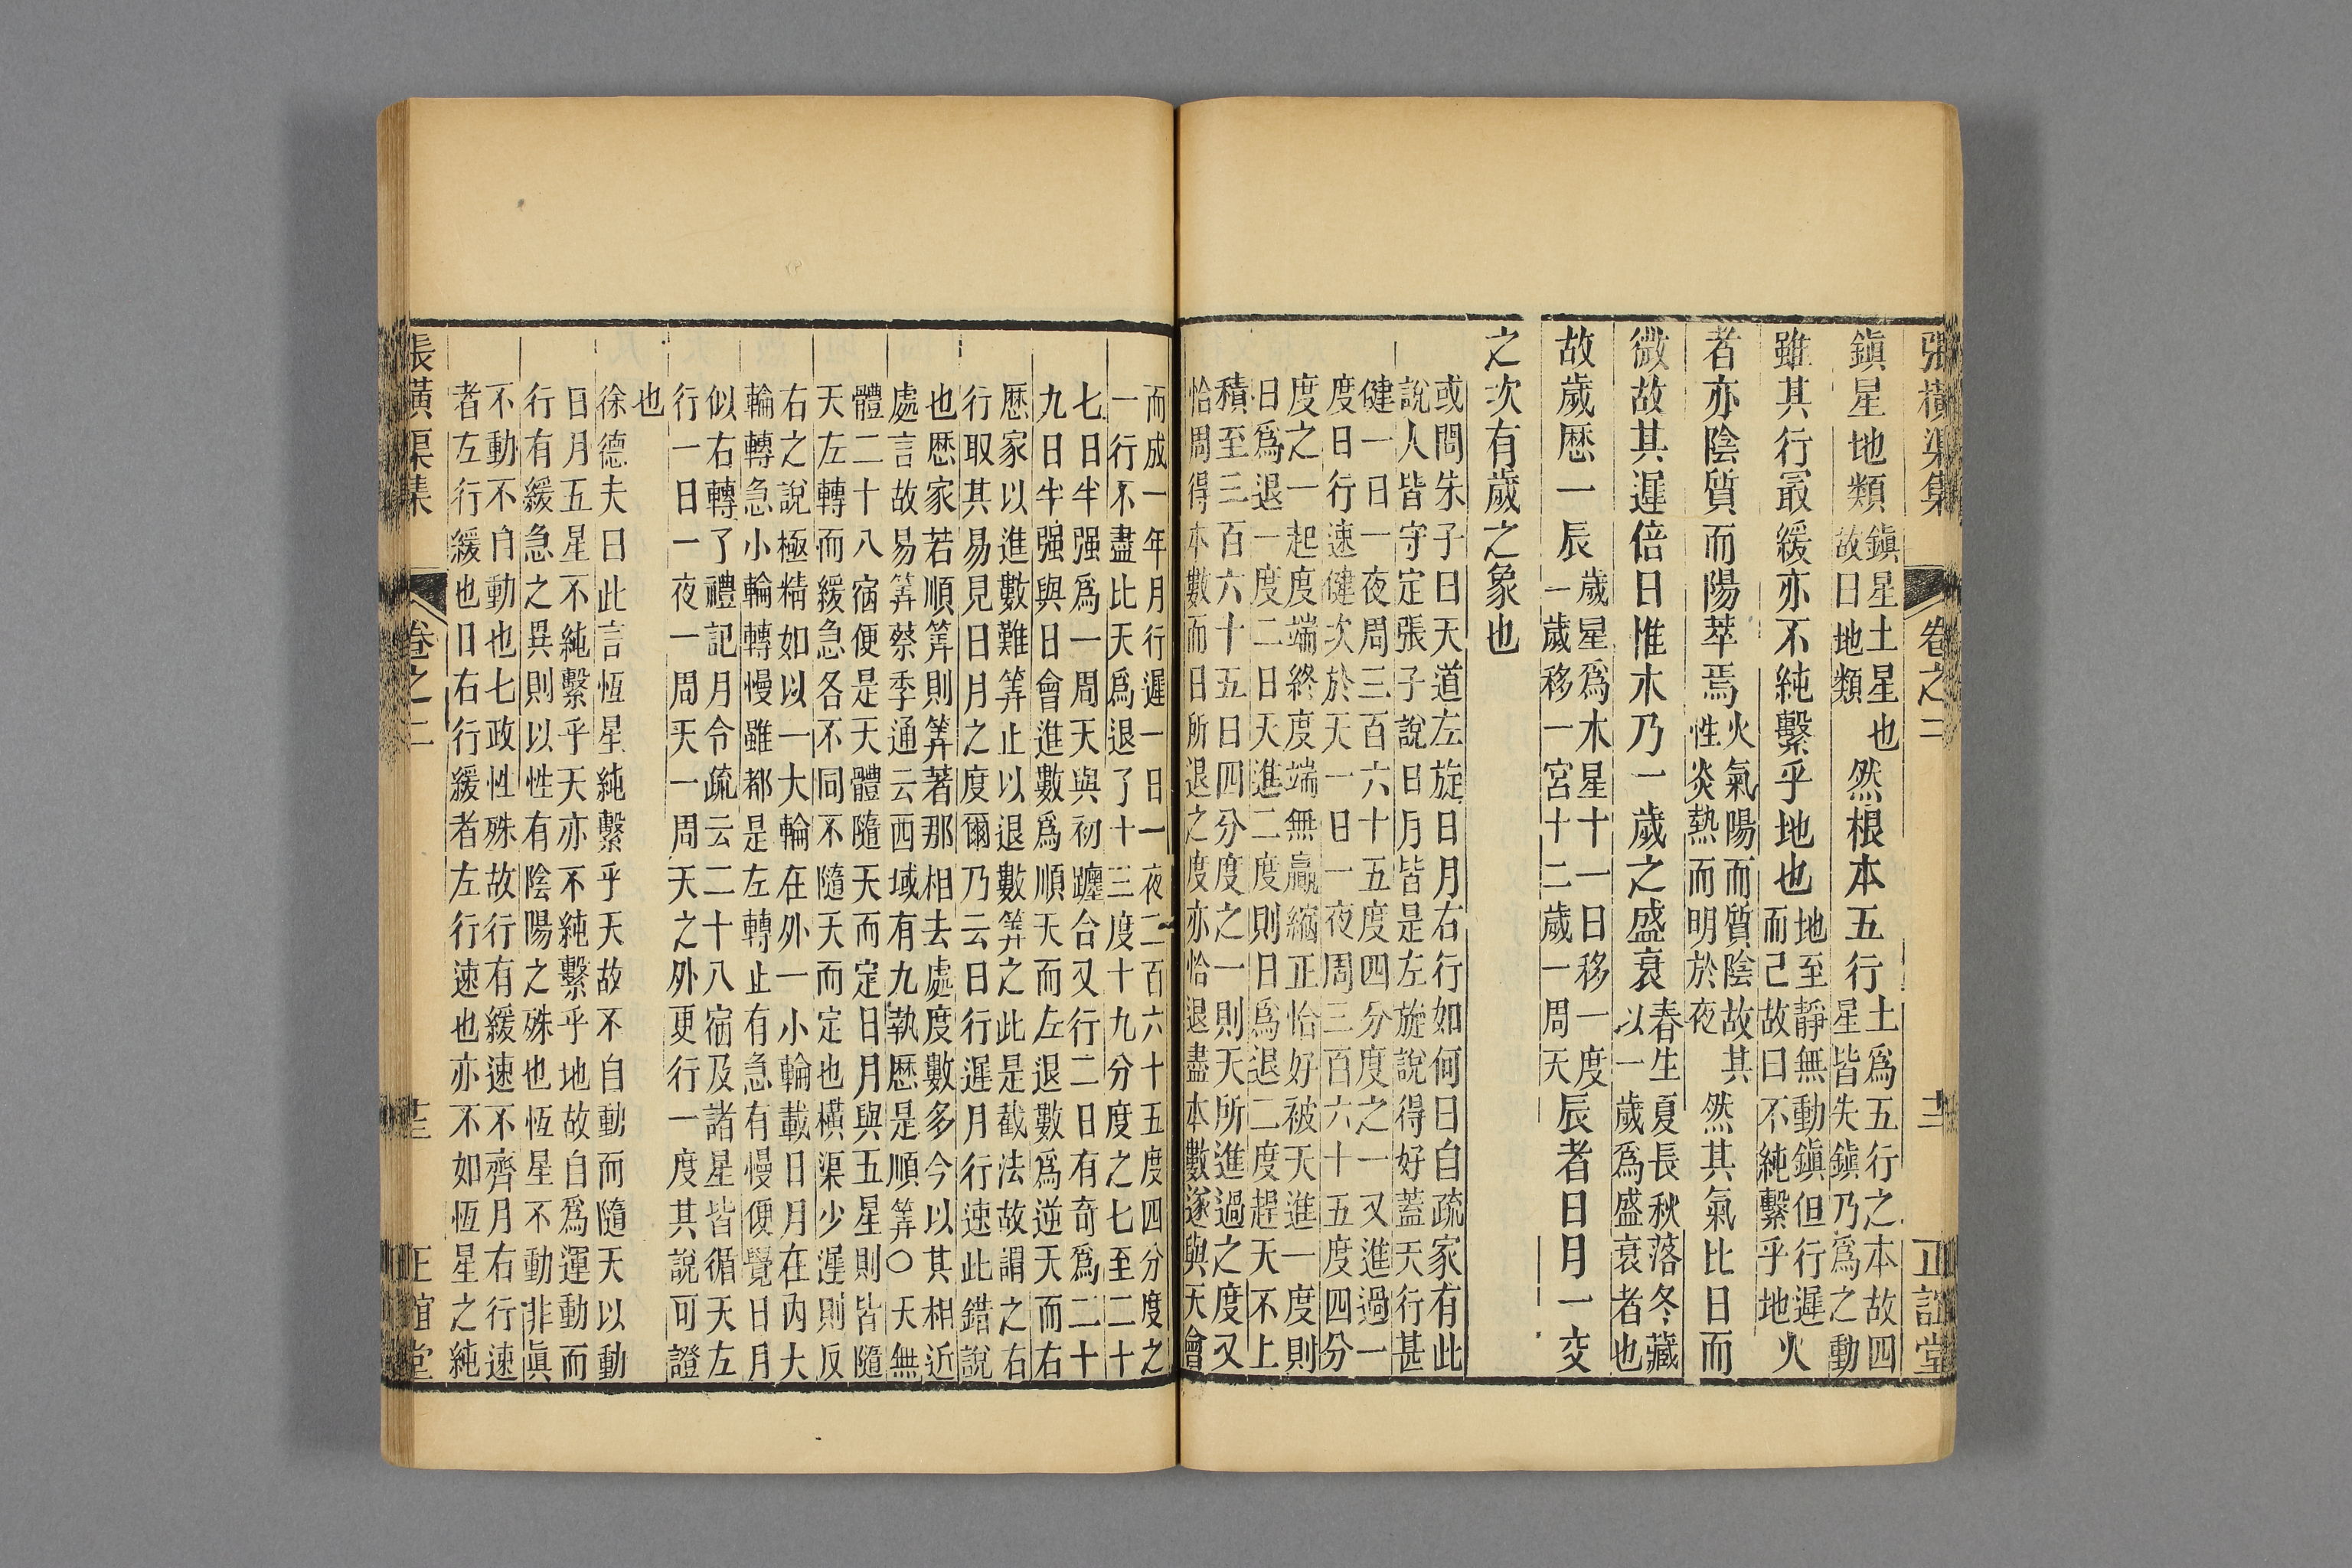 張橫渠集 卷之二 正誼堂
鎮星地類鎮星土星也故曰地類然根本五行土爲五行之本故四星皆失鎮乃爲之動
雖其行㝡緩亦不純繫乎地也地至靜無動鎮但行遲而己故曰不純繫乎地火
者亦陰質而陽萃焉火氣陽而質陰故其性炎熱而明於夜然其氣比日而
微故其遲倍日惟木乃一歲之盛衰春生夏長秋落冬藏以一歲爲盛衰者也
故歲歷一辰歲星爲木星十一日移一度一歲移一宮十二歲一周天辰者日月一交
之次有歲之象也
或問朱子曰天道左旋日月右行如何曰自疏家有此
說人皆守定張子說日月皆是左旋說得好蓋天行甚
健一日一夜周三百六十五度四分度之一又進過一
度日行速健次於天一日一夜周三百六十五度四分
度之一起度端終度端無贏縮正恰好被天進一度則
日爲退一度二日天進二度則日爲退二度趕天不上
積至三百六十五日四分度之一則天所進過之度又
恰周得本數而日所退之度亦恰退盡本數遂與天會
而成一年月行遲一日一夜二百六十五度四分度之
一行不盡比天爲退了十三度十九分度之七至二十
七日半强爲一周天與初躔合又行二日有奇爲二十
九日半强與日會進數爲順天而左退數爲逆天而右
歷家以進數難筭止以退數筭之此是截法故謂之右
行取其易見日月之度爾乃云日行遲月行速此錯說
也歷家若順筭則筭著那相去處度數多今以其相近
處言故易筭蔡季通云西域有九執歷是順筭○天無
體二十八宿便是天體隨天而定日月與五星則皆隨
天左轉而緩急各不同不隨天而定也橫渠少遲則反
右之說極精如以一大輪在外一小輪載日月在內大
輪轉急小輪轉慢雖都是左轉止有急有慢便覺日月
似右轉了禮記月令疏云二十八宿及諸星皆循天左
行一日一夜一周天一周天之外更行一度其說可證
也
徐德夫曰此言恆星純繫乎天故不自動而隨天以動
日月五星不純繫乎天亦不純繫乎地故自爲運動而
行有緩急之異則以性有陰陽之殊也恆星不動非眞
不動不自動也七政性殊故行有緩速不齊月右行速
者左行緩也日右行緩者左行速也亦不如恆星之純
張橫渠集 卷之二 正誼堂